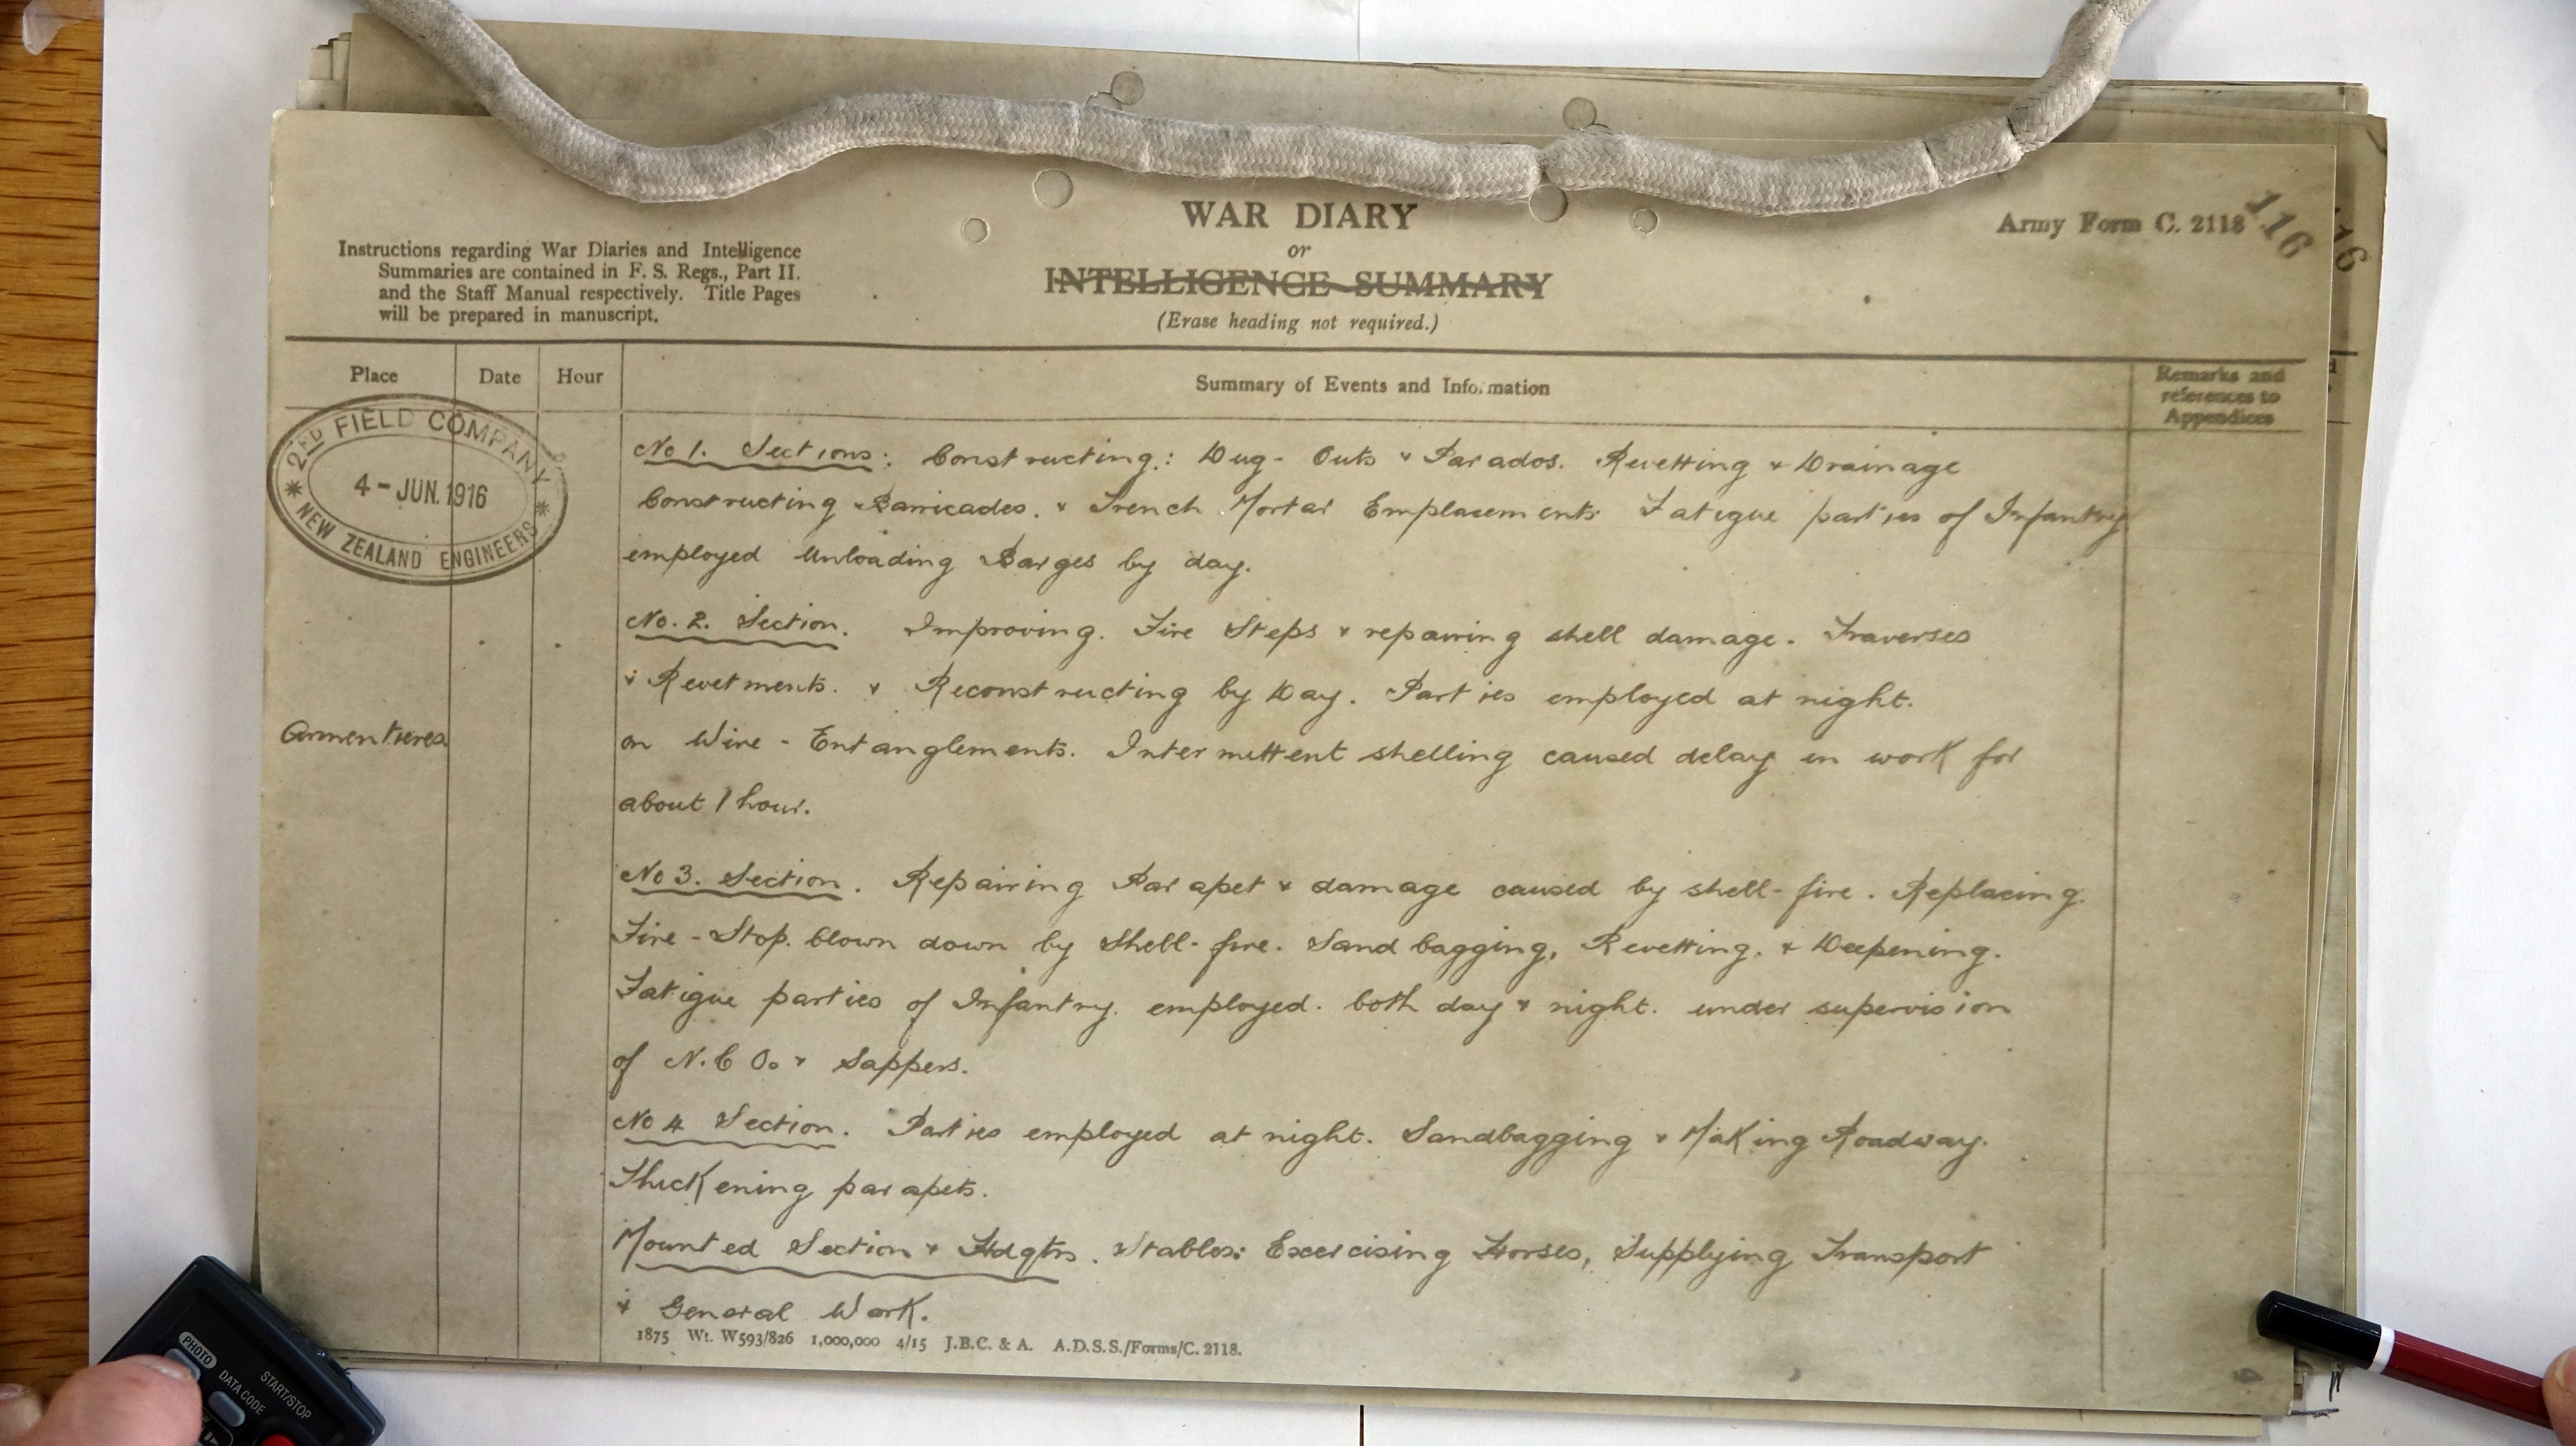 WAR DIARY
or
INTELLIGENCE SUMMARY
(Erase heading not required.)
Army Form C. 2118
116
16
Instructions regarding War Diaries and Intelligence
Summaries are contained in F. S. Regs., Part II.
and the Staff Manual respectively. Title Pages
will be prepared in manuscript.
Place
Date
Hour
Summary of Events and Information
Remarks and
references to
Appendices
2ND FIELD COMPANY
4 - JUN. 1916
NEW ZEALAND ENGINEERS
No 1. Sections: Constructing: Dug-Outs & Parados. Revetting & Drainage
Constructing Barricades. & Trench Mortar Emplacements Fatigue parties of Infantry
employed Unloading Barges by day.
No. 2. Section. Improving. Fire Steps & repairing shell damage. Traverses
& Revetments. & Reconstructing by Day. Parties employed at night.
Armentieres
on Wire-Entanglements. Intermittent shelling caused delay in work for
about 1 hour.
No 3. Section. Repairing Parapet & damage caused by shell-fire. Replacing.
Fire-Stop. blown down by Shell-fire. Sand bagging, Revetting. & Deepening.
Fatigue parties of Infantry. employed. both day & night. under supervision
of N.C Os & Sappers.
No 4 Section. Parties employed at night. Sandbagging & Making Roadway.
Thickening parapets.
Mounted Section & Hdqtrs. Stables: Exercising Horses, Supplying Transport
& General Work.
1875 Wt. W593/826 1,000,000 4/15 J.B.C. & A. A.D.S.S./Forms/C. 2118.
PHOTO
DATA CODE
START/STOP